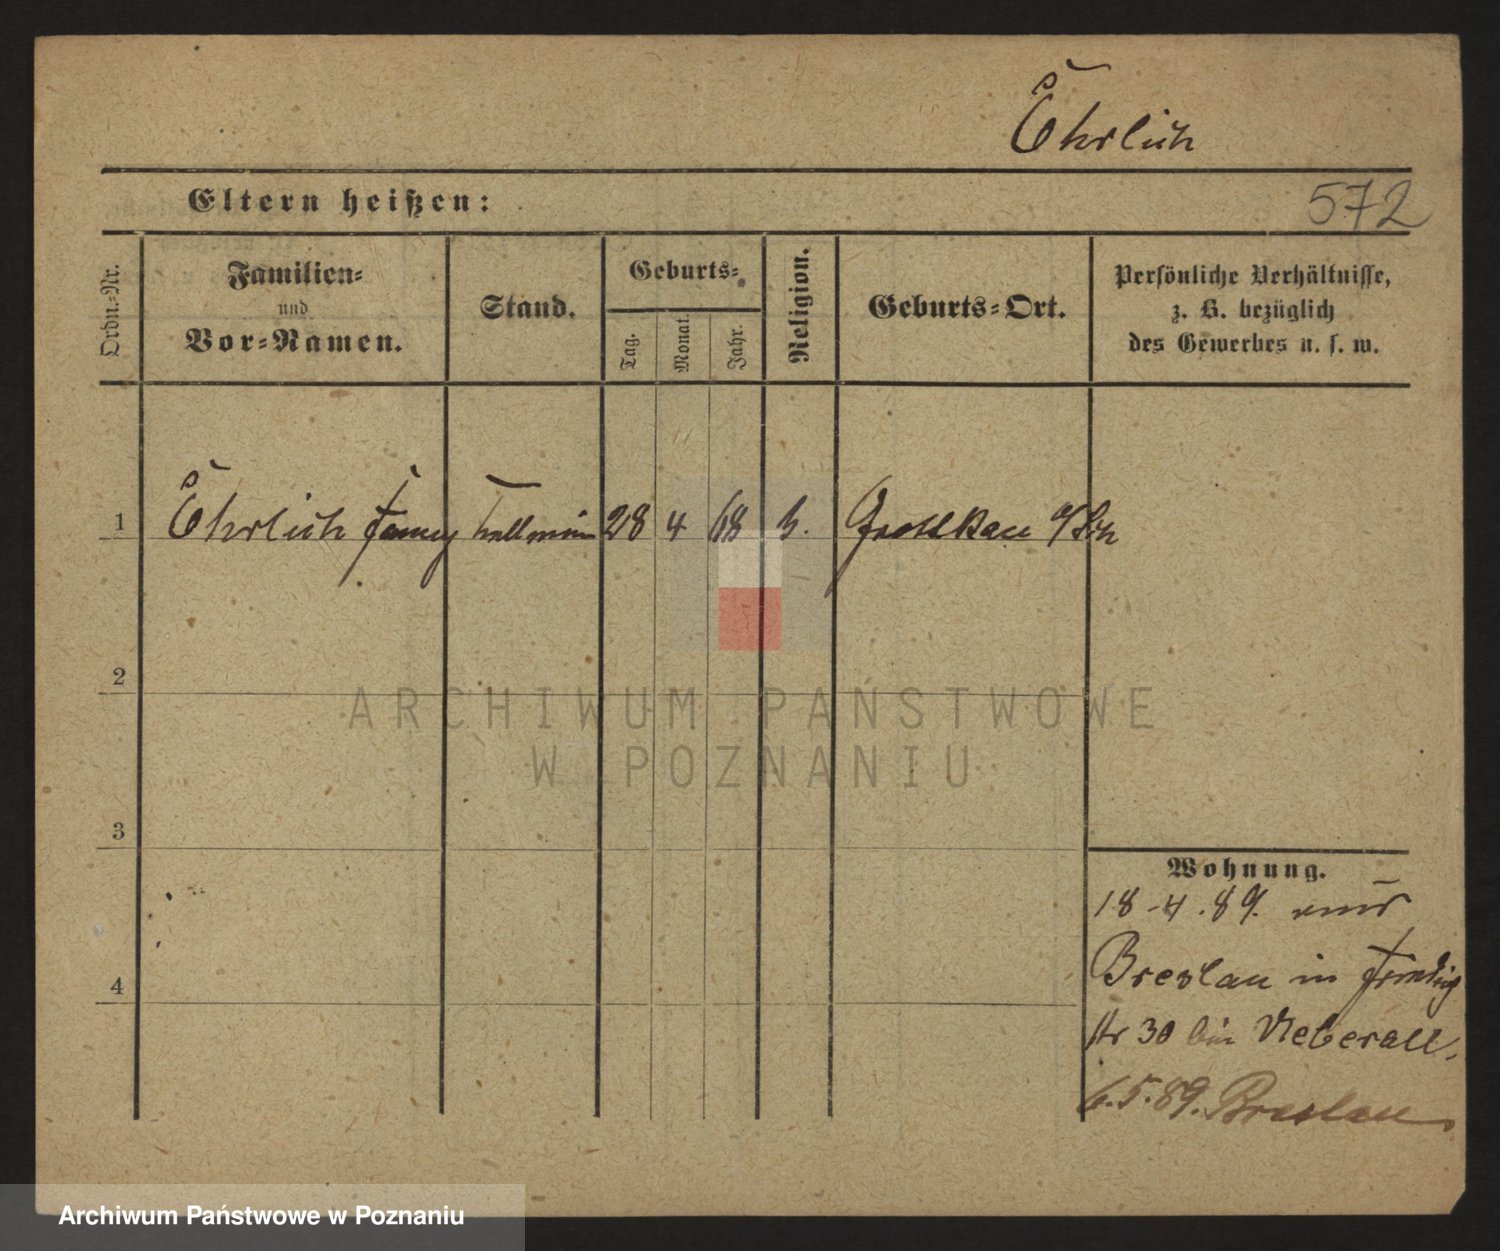 Ehrlich
Eltern heißen:
572
Ordn.=Nr.
Familien=
und
Vor=Namen.
Stand.
Geburts=
Tag.
Monat.
Jahr.
Religion.
Geburts=Ort.
Persönliche Verhältnisse,
z. B. bezüglich
des Gewerbes u. s. w.
1 Ehrlich Fanny 28 4 68 Grottkau
2
3
4
Wohnung.
18-4.89.
Breslau in
Str 30 bei Ueberall.
6.5.89. Breslau
ARCHIWUM PAŃSTWOWE
W POZNANIU
Archiwum Państwowe w Poznaniu